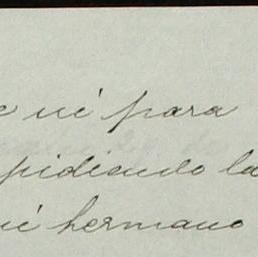 ni para
pidiendo la
mi hermano